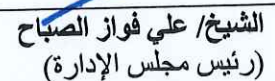 الشيخ/ علي فواز الصباح
(رئيس مجلس الإدارة)